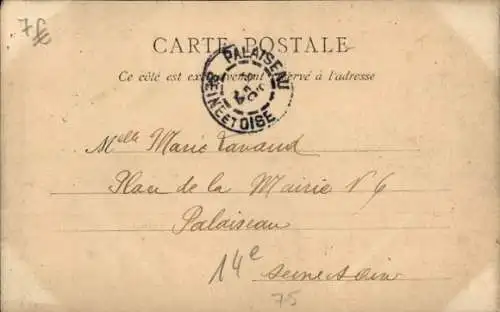 7€
CARTE POSTALE
Ce côté est exclusivement réservé à l'adresse
PALAISEAU
SEINE ET OISE
Melle Marie
Place de la Mairie N 6
Palaiseau
14e
Seine & Oise
75